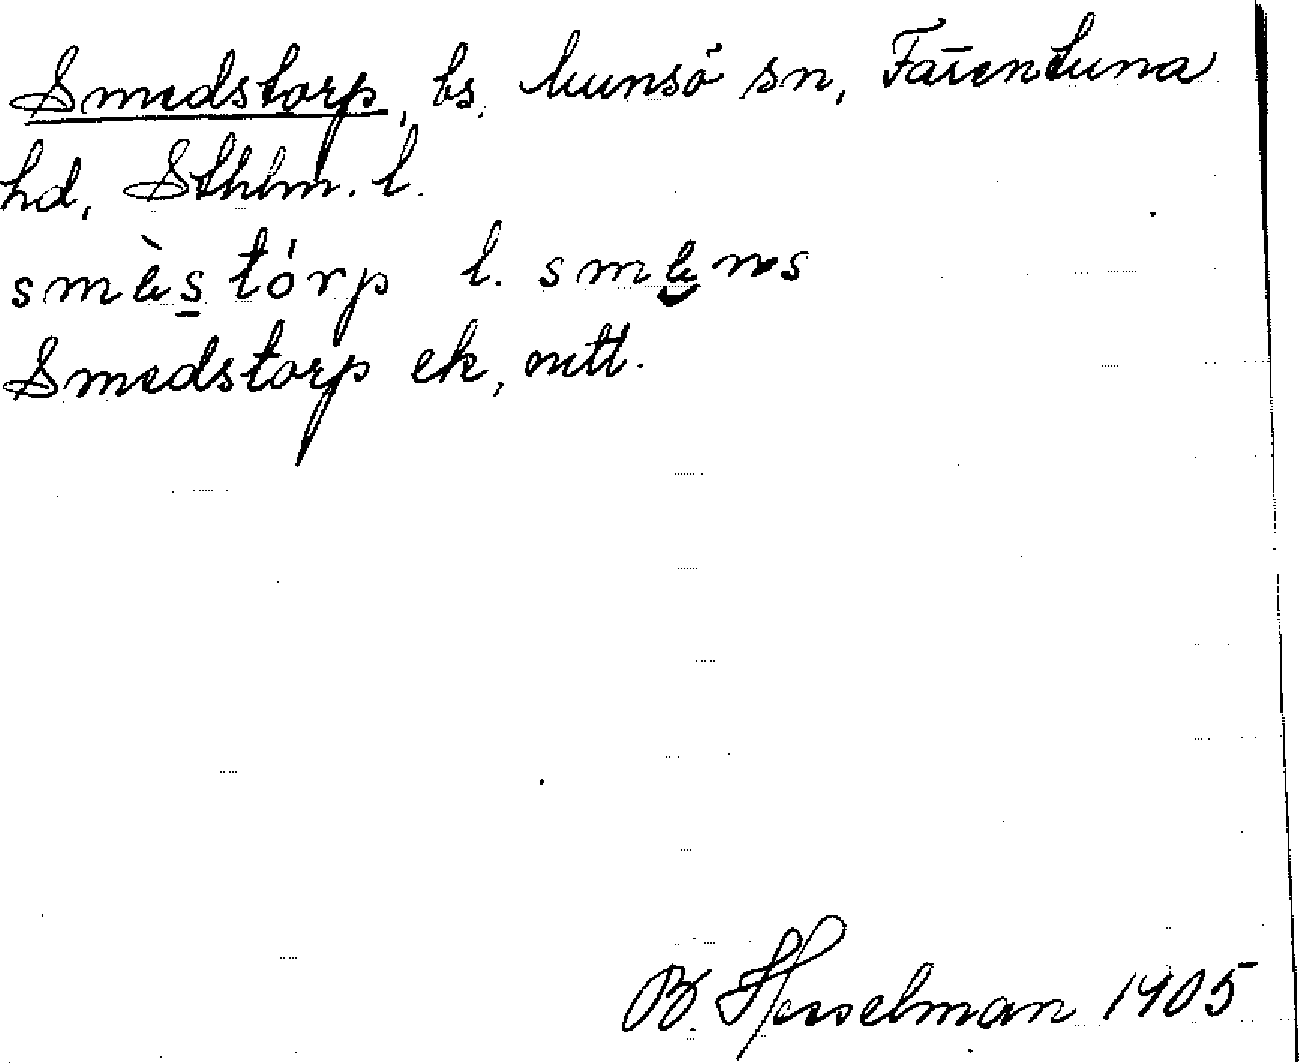 Smedstorp, bs. Munsö sn, Färentuna
hd, Sthlm. l.
smès tórp l. smens
Smedstorp ek, mtl.
B. Hesselman 1905